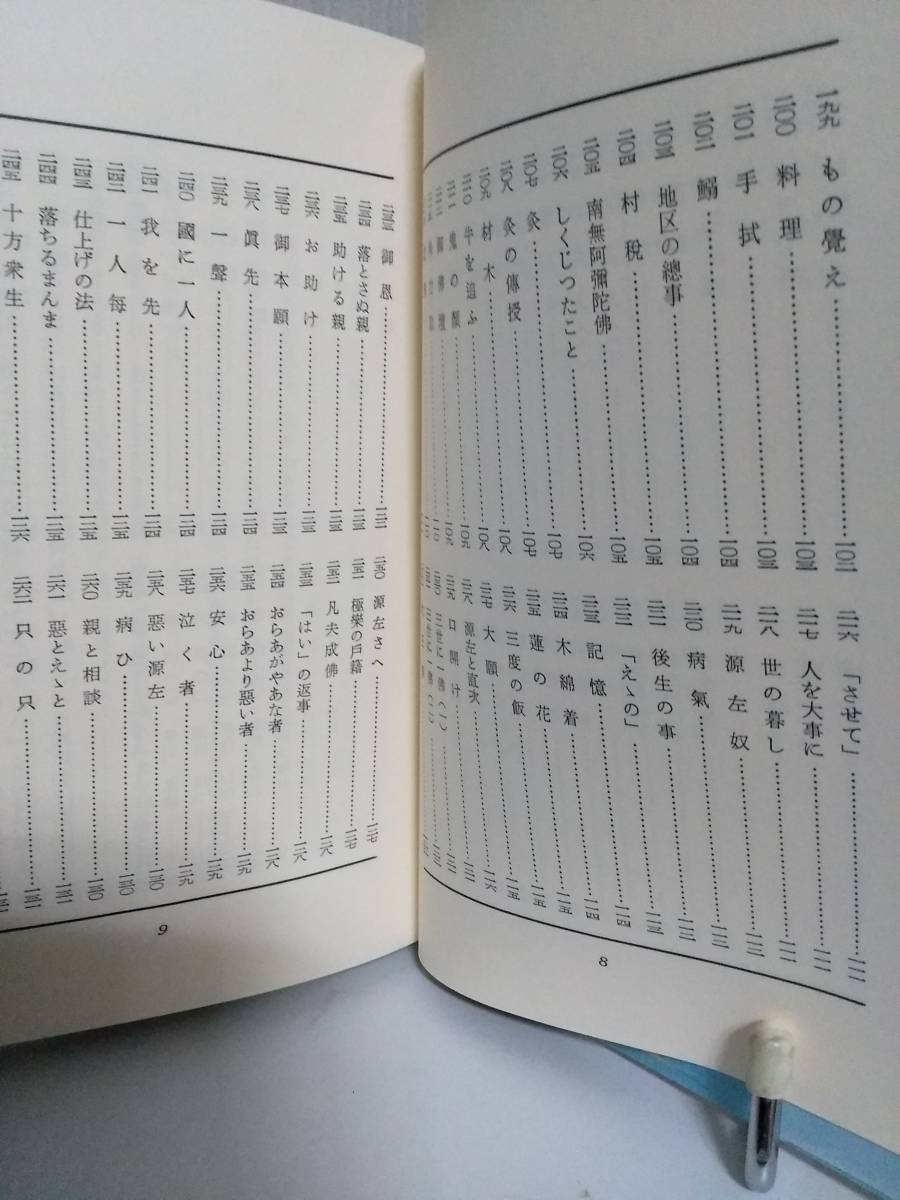 一九九 もの覺え……一〇二
二〇〇 料理……一〇三
二〇一 手拭……一〇三
二〇二 鰯……一〇四
二〇三 地区の總事……一〇四
二〇四 村税……一〇五
二〇五 南無阿彌陀佛……一〇五
二〇六 しくじつたこと……一〇六
二〇七 灸……一〇七
二〇八 灸の傳授……一〇七
二〇九 材木……一〇八
二一〇 牛を追ふ……一〇八
二一一 鬼の顏……一〇九
二一六 「させて」……一一一
二一七 人を大事に……一一一
二一八 世の暮し……一一二
二一九 源左奴……一一二
二二〇 病氣……一一三
二二一 後生の事……一一三
二二二 「えゝの」……一一四
二二三 記憶……一一四
二二四 木綿着……一一五
二二五 蓮の花……一一五
二二六 三度の飯……一一五
二二七 大願……一一六
源左と直次
二二九 口開け
8
二三三 御恩……一二二
二三四 落とさぬ親……一二三
二三五 助ける親……一二三
二三六 お助け……一二三
二三七 御本願……一二三
二三八 眞先……一二四
二三九 一聲……一二四
二四〇 國に一人……一二四
二四一 我を先……一二四
二四二 一人每……一二五
二四三 仕上げの法……一二五
二四四 落ちるまんま……一二五
二四五 十方衆生……一二六
二五〇 源左さへ……一二七
二五一 極樂の戶籍……一二七
二五二 凡夫成佛……一二八
二五三 「はい」の返事……一二八
二五四 おらあがやあな者……一二八
二五五 おらあより惡い者……一二九
二五六 安心……一二九
二五七 泣く者……一二九
二五八 惡い源左……一三〇
二五九 病ひ……一三〇
二六〇 親と相談……一三〇
二六一 惡とえゝと……一三一
二六二 只の只……一三一
9